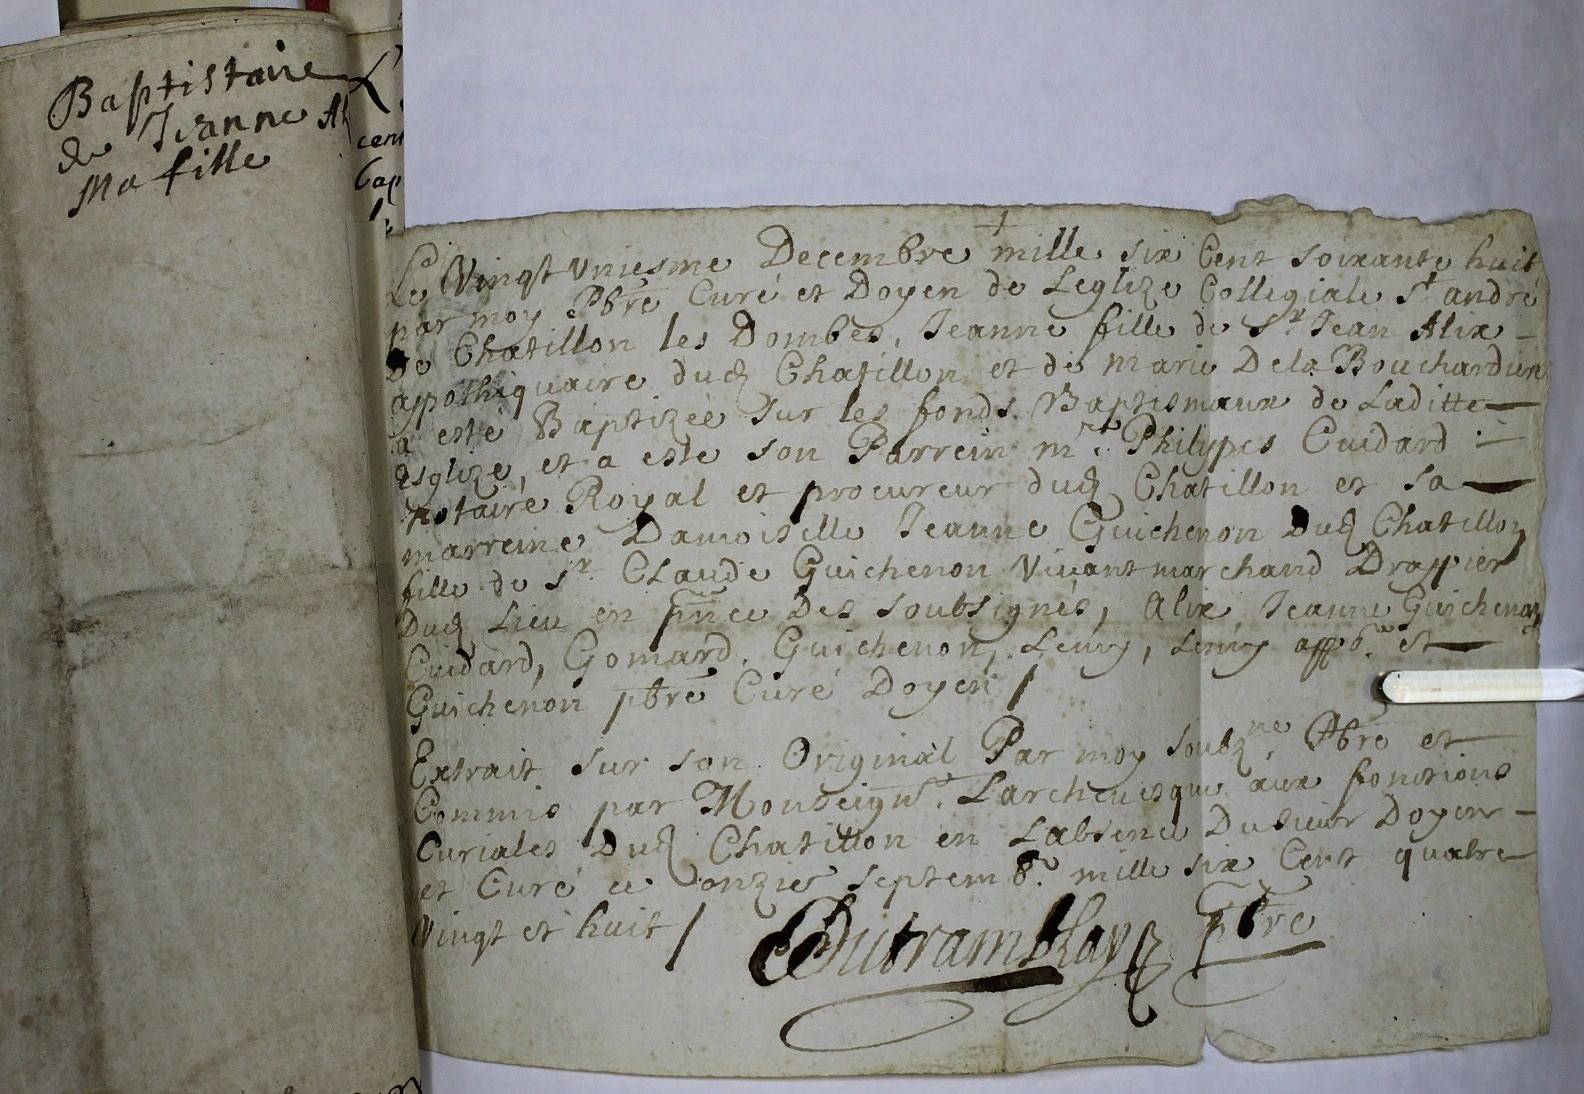 Baptistaire
de Jeanne Al
Ma fille
cen
Cap
Le Vingt vniesme Decembre mille six Cent soixante huit
par moy Pbre Curé et Doyen de Leglize Collegiale St andré
De Chatillon les Dombes, Jeanne fille de Sr Jean Alix -
appothiquaire dud Chatillon et de marie Dela Bouchardiere
a esté Baptizée sur les fonds Baptismaux de Laditte
esglize, et a este son Parrein mre Philyppes Cuidard
notaire Royal et procureur dud Chatillon et sa
marreine Damoiselle Jeanne Guichenon Dud Chatillon
fille de Sr. Claude Guichenon Viuant marchand Drappier
Dud Lieu en pnce Des soubsignés, Alix Jeanne Guichenon
Cuidard, Gomard, Guichenon, et
Guichenon pbre Curé Doyen /
Extrait sur son Original Par moy soubzne. Pbre et
Commis par Monseignr. Larcheuesque aux fonctions
Curiales Dud Chatillon en Labsence Dusieur Doyen -
et Curé ce onzie septem8e. mille six Cent quatre
Vingt et huit / Dutramblay pbre